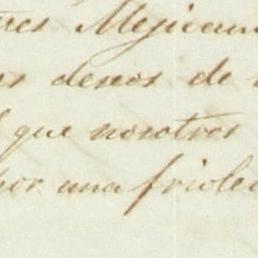 tres Mejican
os deseos de
que nosotros
por una friole